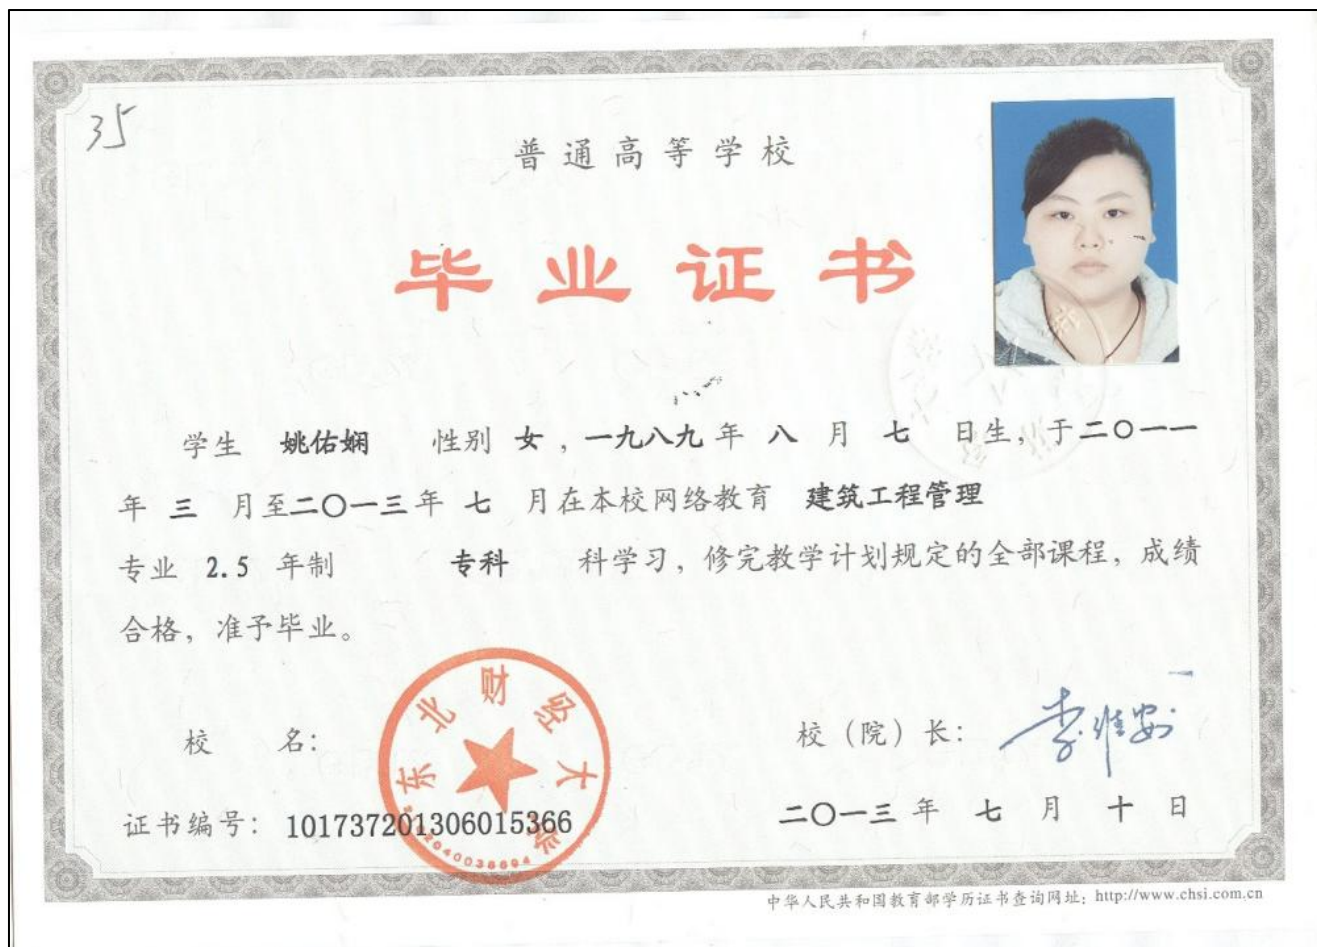 35
普通高等学校
毕业证书
学生 姚佑娴 性别 女，一九八九年 八 月 七 日生，于二〇一一
年 三 月至二〇一三年 七 月在本校网络教育 建筑工程管理
专业 2.5 年制 专科 科学习，修完教学计划规定的全部课程，成绩
合格，准予毕业。
校 名：
东北财经大学
校（院）长：李维安
证书编号：101737201306015366
二〇一三年 七 月 十 日
中华人民共和国教育部学历证书查询网址：http://www.chsi.com.cn